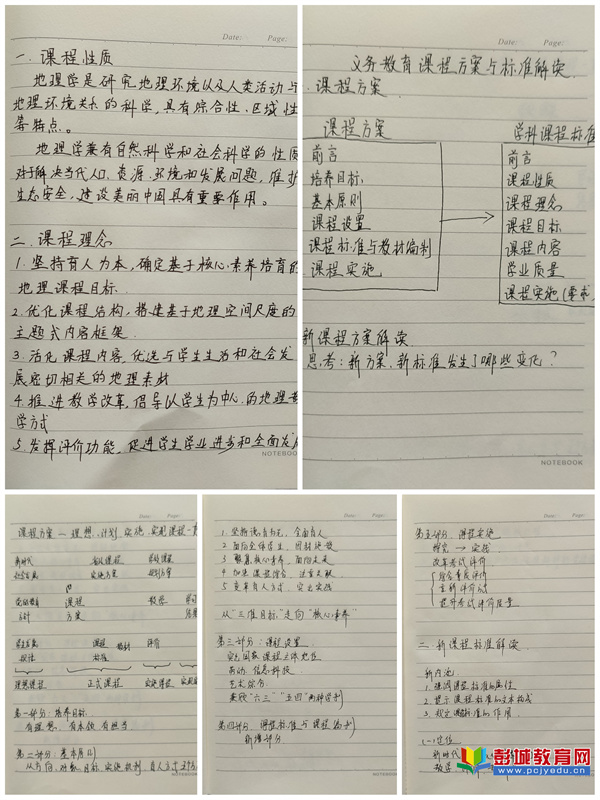 Date: Page:
一. 课程性质
地理学是研究地理环境以及人类活动与
地理环境关系的科学,具有综合性、区域性
等特点。
地理学兼有自然科学和社会科学的性质
对于解决当代人口、资源、环境和发展问题,维护
生态安全,建设美丽中国具有重要作用。
二. 课程理念
1. 坚持育人为本,确定基于核心素养培育的
地理课程目标.
2. 优化课程结构,搭建基于地理空间尺度的
主题式内容框架.
3. 活化课程内容,优选与学生生活和社会发
展密切相关的地理素材
4. 推进教学改革,倡导以学生为中心的地理教
学方式
5. 发挥评价功能,促进学生学业进步和全面发展
NOTEBOOK
Date: Page:
义务教育课程方案与标准解读.
课程方案
课程方案
前言
培养目标
基本原则
课程设置
课程标准与教材编制
课程实施
学科课程标准
前言
课程性质
课程理念
课程目标
课程内容
学业质量
课程实施(要求
新课程方案解读
思考:新方案、新标准发生了哪些变化?
NOTEBOOK
Date: Page:
课程方案 — 理想、计划、实施、实现课程一
新时代
课程
方案
教材
评价
理想课程
正式课程
第一部分:培养目标.
有理想、有本领、有担当
第二部分:基本原则
Date: Page:
1. 坚持德育为先,全面育人
2. 面向全体学生,因材施教
3. 聚焦核心素养,面向未来
4. 加强课程综合,注重关联
5. 变革育人方式,突出实践
从"三维目标"走向"核心素养"
第三部分:课程设置.
劳动、信息科技
艺术综合
兼顾"六三""五四"两种学制
第四部分 课程标准与课程编制
新增部分
NOTEBOOK
Date: Page:
第五部分 课程实施
探究 → 实践
改革考试评价
提升考试评价质量
二. 新课程标准解读.
1. 强调课程标准的属性
2. 提示课程标准的文本构成
3. 规定课程标准的作用.
(一)定位
新时代
彭城教育网
www.pcjyedu.cn